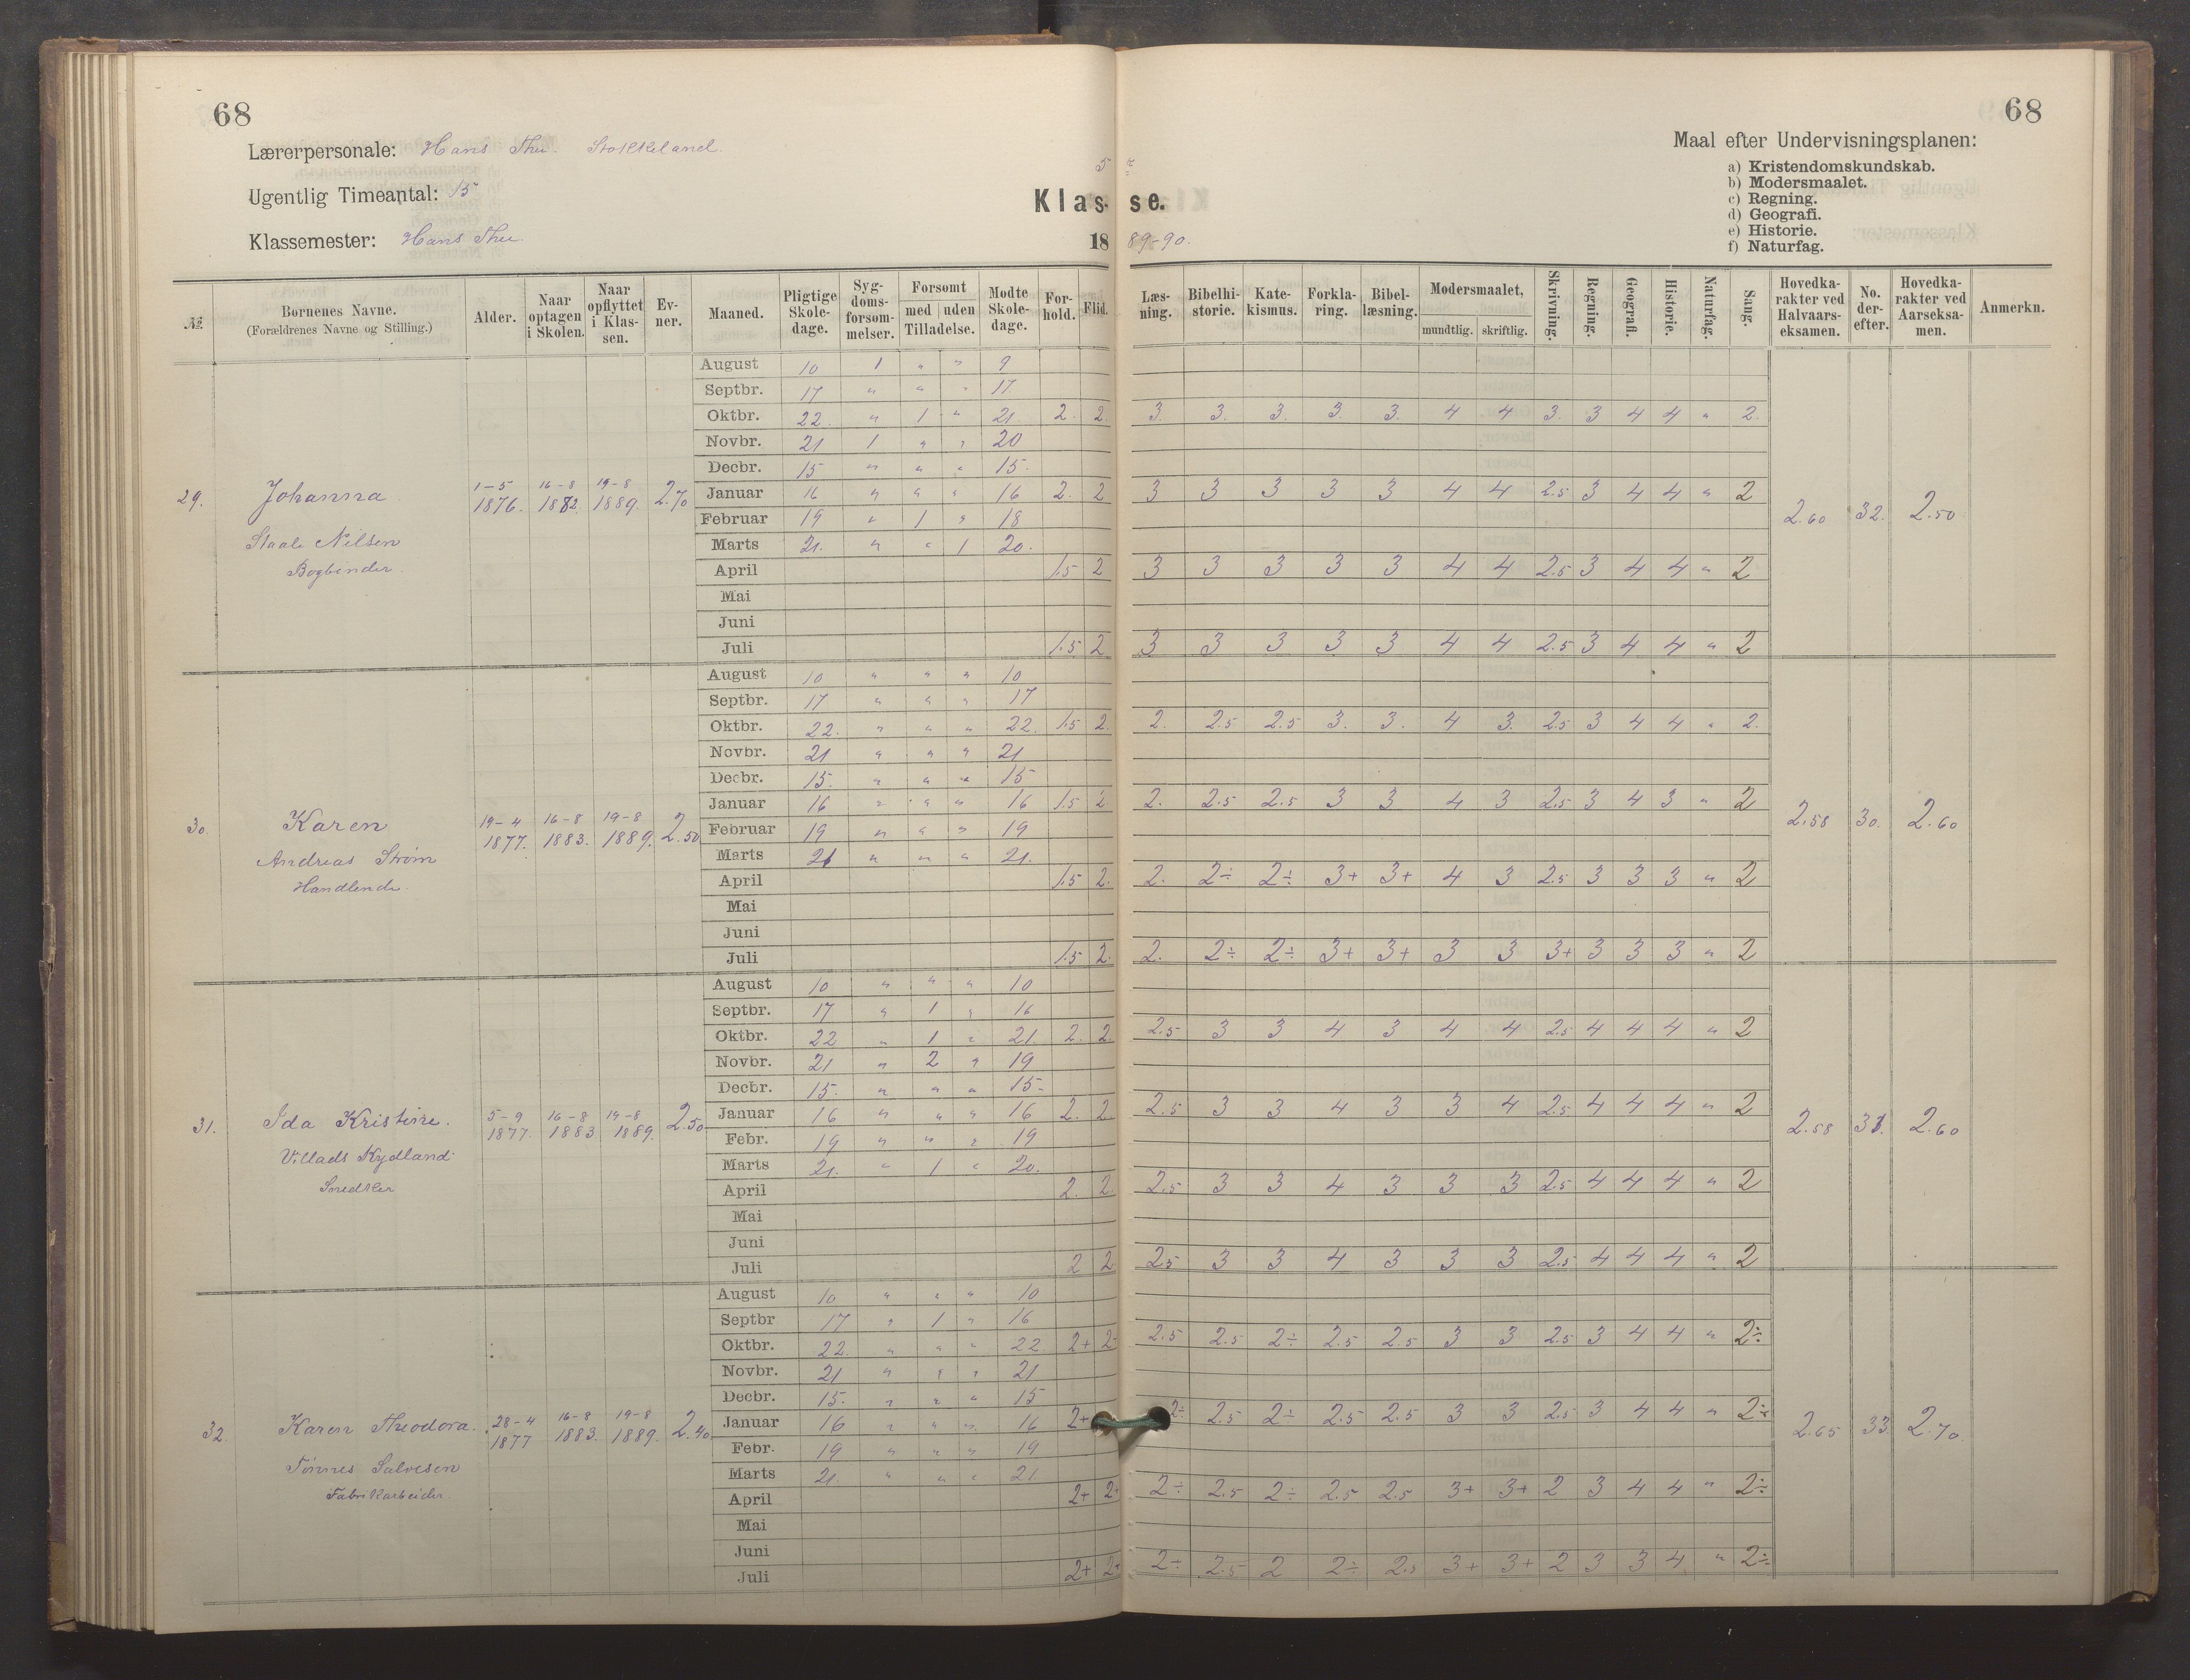 68
68
Lærerpersonale: Hans Thu. Stokkeland.
Ugentlig Timeantal: 15
Klassemester: Hans Thu.
5
Klas- se.
18 89-90.
Maal efter Undervisningsplanen:
a) Kristendomskundskab.
b) Modersmaalet.
c) Regning.
d) Geografi.
e) Historie.
f) Naturfag.
№ Børnenes Navne. (Forældrenes Navne og Stilling.) Alder. Naar optagen i Skolen. Naar opflyttet i Klassen. Evner. Maaned. Pligtige Skoledage. Sygdomsforsommelser. Forsømt med uden Tilladelse. Mødte Skoledage. Forhold. Flid. Læsning. Bibelhistorie. Katekismus. Forklaring. Bibellæsning. Modersmaalet, mundtlig. skriftlig. Skrivning. Regning. Geografi. Historie. Naturfag. Sang. Hovedkarakter ved Halvaarseksamen. No. derefter. Hovedkarakter ved Aarseksamen. Anmerkn.
29. Johanna Staale Nilsen Bogbinder. 1-5 1876. 16-8 1882. 19-8 1889. 2.70 2.60 32. 2.50
August 10 1 " " 9
Septbr. 17 " " " 17.
Oktbr. 22. " 1 " 21. 2. 2. 3. 3. 3. 3. 3. 4 4 3. 3 4 4 " 2.
Novbr. 21 1 " " 20
Decbr. 15 " " " 15.
Januar 16 " " " 16 2. 2 3 3 3 3 3 4 4 2.5 3 4 4 " 2
Februar 19 " 1 " 18
Marts 21. " " 1 20.
April 1.5 2 3 3 3 3 3 4 4 2.5 3 4 4 " 2
Mai
Juni
Juli 1.5 2 3 3 3 3 3 4 4 2.5 3 4 4 " 2
30. Karen Andreas Strøm Handlende. 19-4 1877. 16-8 1883. 19-8 1889. 2.50 2.58 30. 2.60
August 10 " " " 10
Septbr. 17 " " " 17
Oktbr. 22. " " " 22. 1.5 2. 2. 2.5 2.5 3. 3. 4 3. 2.5 3 4 4 " 2.
Novbr. 21 " " " 21
Decbr. 15. " " " 15
Januar 16 " " " 16 1.5 2. 2. 2.5 2.5 3 3 4 3 2.5 3 4 3 " 2
Februar 19 " " " 19
Marts 21 " " " 21.
April 1.5 2. 2. 2÷ 2÷ 3+ 3+ 4 3 2.5 3 3 3 " 2
Mai
Juni
Juli 1.5 2. 2. 2÷ 2÷ 3+ 3+ 3 3 3+ 3 3 3 " 2
31. Ida Kristine. Villads Rydland Snedker 5-9 1877. 16-8 1883 19-8 1889. 2.50 2.58 31. 2.60
August 10 " " " 10
Septbr. 17 " 1 " 16
Oktbr. 22 " 1 " 21. 2. 2. 2.5 3 3 4 3 4 4 2.5 4 4 4 " 2
Novbr. 21 " 2 " 19
Decbr. 15. " " " 15.
Januar 16 " " " 16 2. 2 2.5 3 3 4 3 3 4 2.5 4 4 4 " 2
Febr. 19 " " " 19
Marts 21. " 1 " 20.
April 2. 2. 2.5 3 3 4 3 3 3 2.5 4 4 4 " 2
Mai
Juni
Juli 2 2 2.5 3 3 4 3 3 3 2.5 4 4 4 " 2
32. Karen Theodora. Tønnes Salvesen Fabrikarbeider. 28-4 1877 16-8 1883. 19-8 1889. 2.40 2.65 33. 2.70.
August 10 " " " 10
Septbr 17 " 1 " 16
Oktbr. 22. " " " 22 2+ 2 2.5 2.5 2÷ 2.5 2.5 3 3 2.5 3 4 4 " 2÷
Novbr. 21 " " " 21
Decbr. 15. " " " 15
Januar 16 " " " 16 2+ 2÷ 2.5 2÷ 2.5 2.5 3 3 2.5 3 4 4 " 2÷
Febr. 19 " " " 19
Marts 21. " " " 21
April 2+ 2+ 2÷ 2.5 2÷ 2.5 2.5 3+ 3+ 2 3 4 4 " 2÷
Mai
Juni
Juli 2+ 2+ 2÷ 2.5 2 2÷ 2.5 3+ 3+ 2 3 3 4. " 2÷